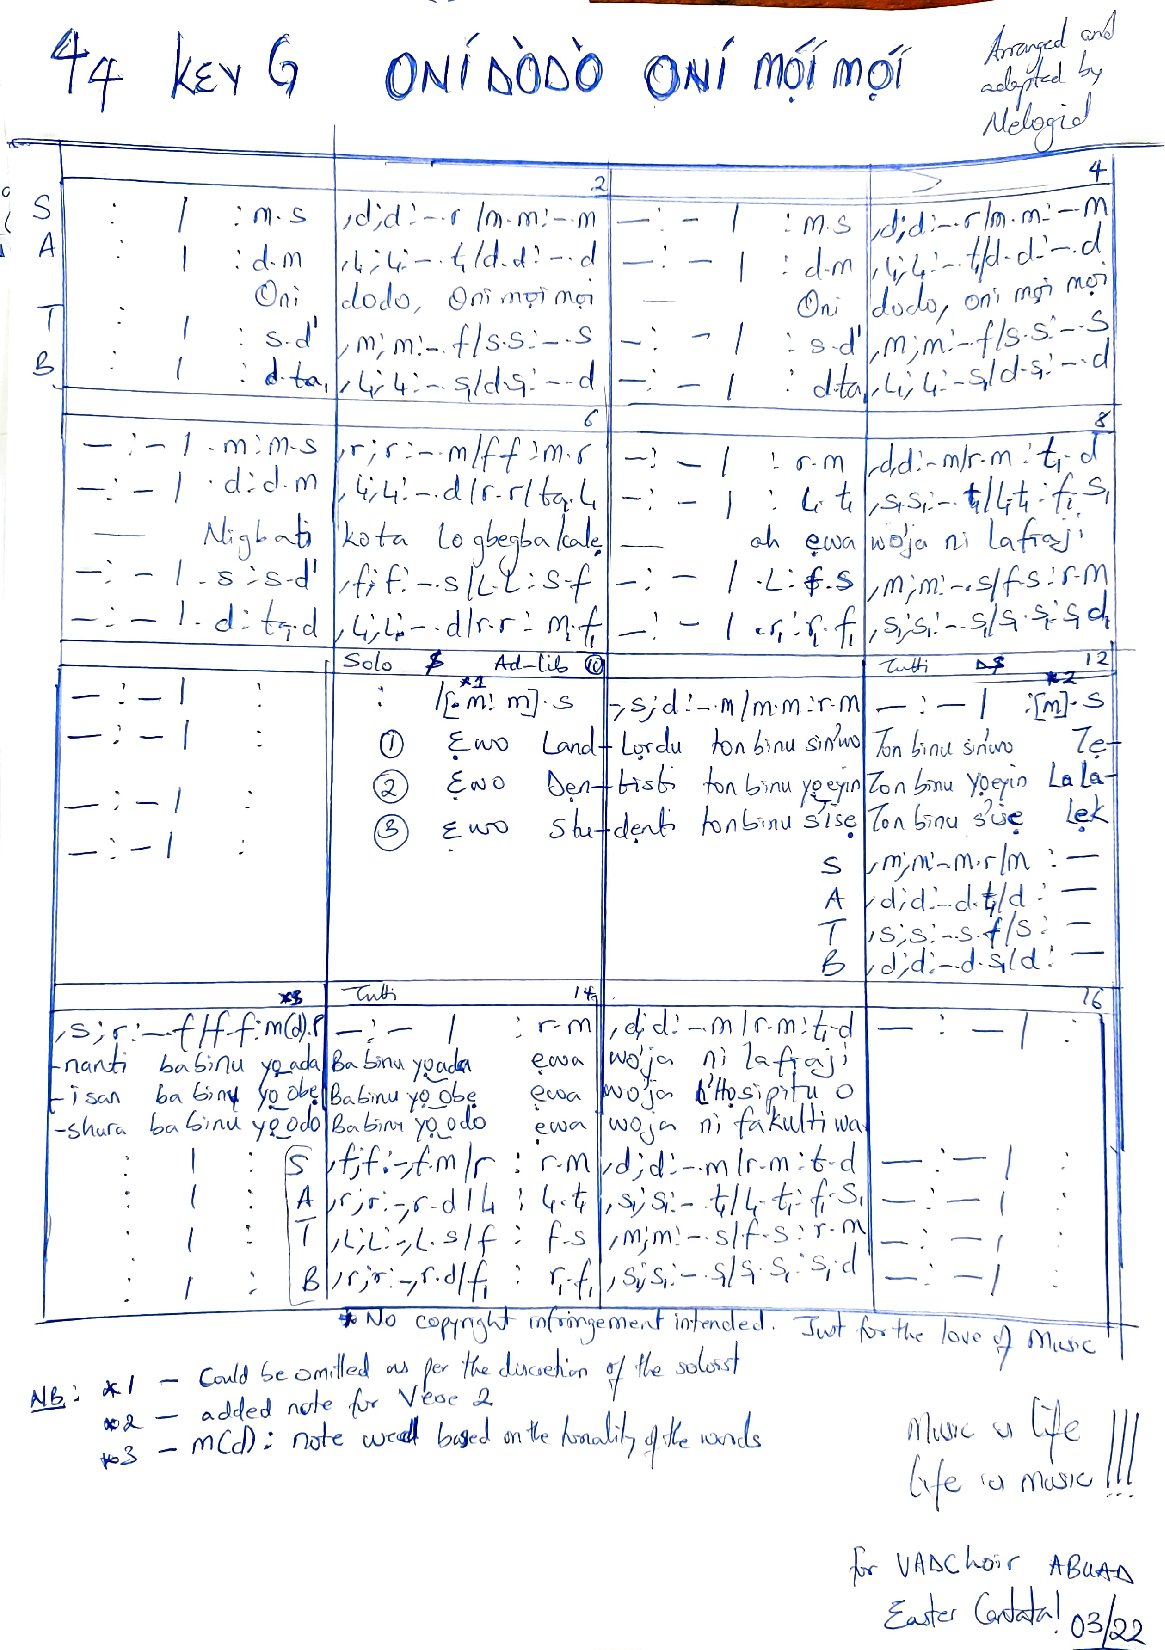 4/4 KEY G ONÍ DÒDÒ ONÍ MỌ́Í MỌ́Í
Arranged and
adapted by
Melogid
2 4
S : | : m.s ,d;d:-.r/m.m:-.m -:-| : m.s ,d;d:-.r/m.m:-.m
A : | : d.m ,l₁;l₁:-.t₁/d.d:-.d -:-| : d.m ,l₁;l₁:-.t₁/d.d:-.d
Oni dodo, Oni mọi mọi — Oni dodo, oni mọi mọi
T : | : s.d' ,m;m:-.f/s.s:-.s -:-| : s.d' ,m;m:-.f/s.s:-.s
B : | : d.ta₁ ,l₁;l₁:-.s₁/d.s₁:-.d -:-| : d.ta₁ ,l₁;l₁:-.s₁/d.s₁:-.d
6 8
-:-|.m:m.s ,r;r:-.m/f.f:m.r -:-| : r.m ,d;d:-.m/r.m:t₁.d
-:-|.d:d.m ,l₁;l₁:-.d/r.r/ta₁.l₁ -:-| : l₁.t₁ ,s₁;s₁:-.t₁/l₁.t₁:f₁.s₁
— Nigbati kota lo gbegba kalẹ — ah ẹwa wo'ja ni lafiaji
-:-|.s:s.d' ,f;f:-.s/l.l:s.f -:-|.l:f.s ,m;m:-.s/f.s:r.m
-:-|.d:ta₁.d ,l₁;l₁:-.d/r.r:m₁.f₁ -:-|.r₁:r₁.f₁ ,s₁;s₁:-.s₁/s₁.s₁:s₁.d₁
Solo $ Ad-lib 10 Tutti D$ 12
*1 *2
-:-| : : /[.m:m].s -,s;d:-.m/m.m:r.m -:-| :[m].s
-:-| : ① Ẹwo Land-Lordu ton binu sin'wo Ton binu sin'wo Tẹ-
-:-| : ② Ẹwo Dẹn-tisti ton binu yọeyin Ton binu yọeyin Lala-
-:-| : ③ Ẹwo Stu-dẹnti ton binu s'isẹ Ton binu s'isẹ Lẹk
S ,m;m:-.m.r/m:-
A ,d;d:-.d.t₁/d:-
T ,s;s:-.s.f/s:-
B ,d;d:-.d.s₁/d:-
*3 Tutti 14 16
,s;r:-.f/f.f:m(d).r -:-| : r.m ,d;d:-.m/r.m:t₁.d -:-| :
-nanti ba binu yọ ada Ba binu yọ ada ẹwa wo'ja ni lafiaji
-isan ba binu yọ ọbẹ Ba binu yọ ọbẹ ẹwa wo'ja l'Họsipitu o
-shura ba binu yọ odo Ba binu yọ odo ẹwa woja ni fakulti wa
: | : S ,f;f:-,f.m/r : r.m ,d;d:-.m/r.m:t.d -:-| :
: | : A ,r;r:-,r.d/l₁ : l₁.t₁ ,s₁;s₁:-.t₁/l₁.t₁:f₁.s₁ -:-| :
: | : T ,l;l:-,l.s/f : f.s ,m;m:-.s/f.s:r.m -:-| :
: | : B ,r;r:-,r.d/f₁ : r₁.f₁ ,s₁;s₁:-.s₁/s₁.s₁:s₁.d -:-| :
* No copyright infringement intended. Just for the love of Music
NB: *1 – Could be omitted as per the discretion of the soloist
*2 – added note for Verse 2
*3 – m(d): note used based on the tonality of the words
Music is life
life is music!!!
for VADChoir ABUAD
Easter Cantata! 03/22